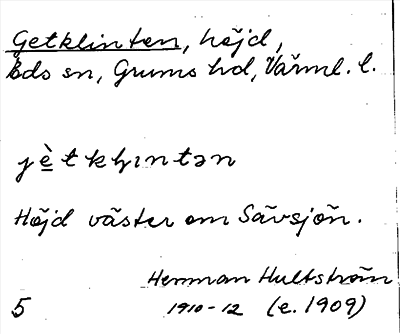 Getklinten, höjd,
Eds sn, Grums hd, Värml. l.
jè̲tkḷıntən
Höjd väster om Sävsjön.
Herman Hultström
1910-12 (e. 1909)
5